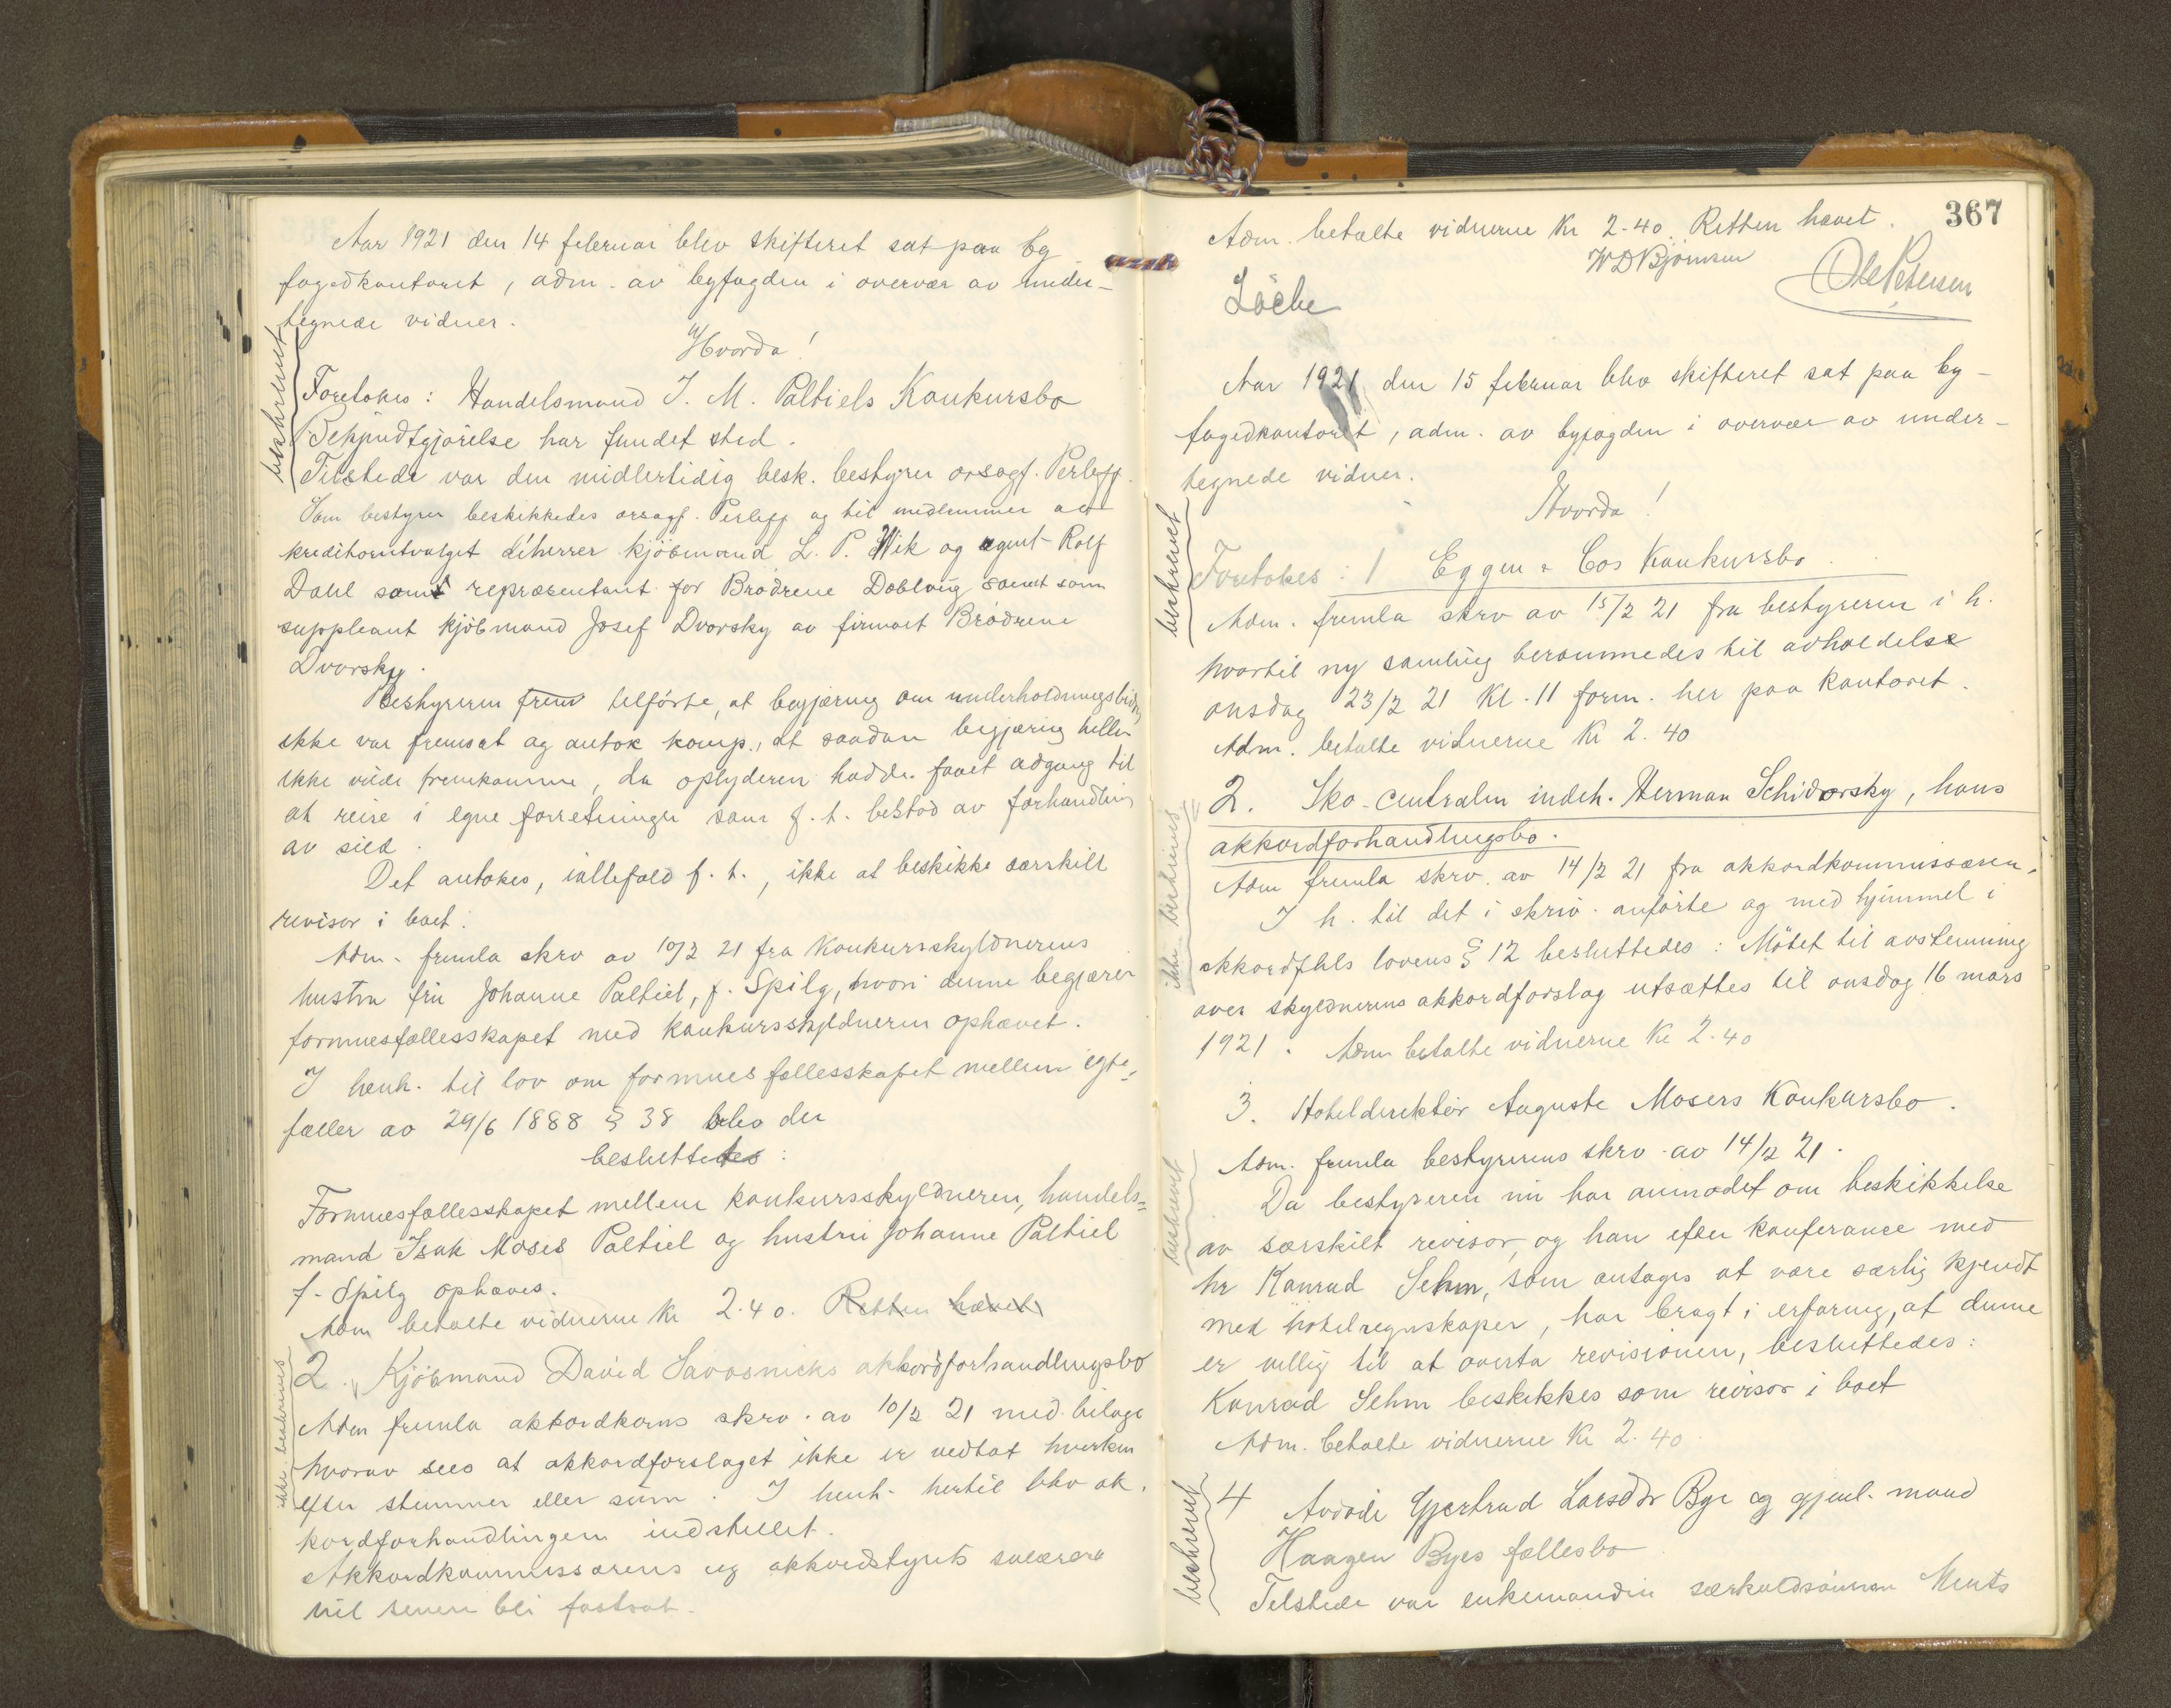 Aar 1921 den 14 februar blev skifteret sat paa by
fogedkontoret, adm. av byfogden i overvær av under-
tegnede vidner.
Hvorda!
beskrevet
Foretokes: Handelsmand J. M. Paltiels Konkursbo
Bekjendtgjørelse har fundet sted.
Tilstede var den midlertidig besk. bestyrer orsagf. Perleff.
Som bestyrer beskikkedes orsagf. Perleff og til medlemmer av
kreditorutvalget d'herrer kjøbmand L. P. Wik og agent Rolf
Dahl som repræsentant for Brødrene Dobloug samt som
suppleant kjøbmand Josef Dvorsky av firmaet Brødrene
Dvorsky.
Bestyreren frem tilførte, at begjæring om underholdningsbidr
ikke var fremsat og antok komp., at saadan begjæring heller
ikke vilde fremkomme, da opbyderen hadde faaet adgang til
at reise i egne forretninger som f. t. bestod av forhandling
av sild.
Det antokes, iallefald f. t., ikke at beskikke særskilt
revisor i boet.
Adm. fremla skrv av 10/2 21 fra Konkursskyldnerens
hustru fru Johanne Paltiel, f. Spilg, hvori denne begjærer
formuesfællesskapet med konkursskyldneren ophævet.
I henh. til lov om formuesfællesskapet mellem egte-
fæller av 29/6 1888 § 38 blev der
besluttetes:
Formuesfællesskapet mellem konkursskyldneren, handels-
mand Isak Moses Paltiel og hustru Johanne Paltiel
f. Spilg ophæves.
Adm betalte vidnerne Kr 2.40. Retten hævet
ikke beskrevet
2. Kjøbmand David Savosnicks akkordforhandlingsbo
Adm fremla akkordkoms skrv. av 10/2 21 med bilage
hvorav sees at akkordforslaget ikke er vedtat hverken
efter stemmer eller sum. I henh. hertil blev ak-
kordforhandlingen indstillet.
Akkordkommissærens og akkordstyrets salærer
vil senere bli fastsat.
367
Adm. betalte vidnerne Kr 2-40. Retten hævet.
W D Bjørnsen
Ole Petersen
Aar 1921 den 15 februar blev skifteret sat paa by-
fogedkontoret, adm. av byfogden i overvær av under-
tegnede vidner.
Hvorda!
beskrevet
Foretokes: 1 Eggen & Cos Konkursbo.
Adm. fremla skrv av 15/2 21 fra bestyreren i h.
hvortil ny samling berammedes til avholdelse
onsdag 23/2 21 Kl. 11 form. her paa kontoret.
Adm. betalte vidnerne Kr 2.40
ikke beskrevet
2. Sko-centralen indeh. Herman Schidorsky, hans
akkordforhandlingsbo.
Adm fremla skrv. av 14/2 21 fra akkordkommissæren.
I h. til det i skriv. anførte og med hjemmel i
akkordfhls lovens § 12 besluttedes: Møtet til avstemning
over skyldnerens akkordforslag utsættes til onsdag 16 mars
1921. Adm betalte vidnerne Kr 2.40
beskrevet
3. Hoteldirektør Auguste Mosers Konkursbo.
Adm. fremla bestyrerens skrv. av 14/2 21.
Da bestyreren nu har anmodet om beskikkelse
av særskilt revisor, og han efter konferance med
hr Konrad Sehm, som antages at være særlig kjendt
med hotelregnskaper, har bragt i erfaring, at denne
er villig til at overta revisionen, besluttedes:
Konrad Sehm beskikkes som revisor i boet
Adm. betalte vidnerne Kr 2.40.
beskrevet
4 Avdøde Gjertrud Larsdtr Bye og gjenl. mand
Haagen Byes fællesbo
Tilstede var enkemanden særkuldsønnen Ments